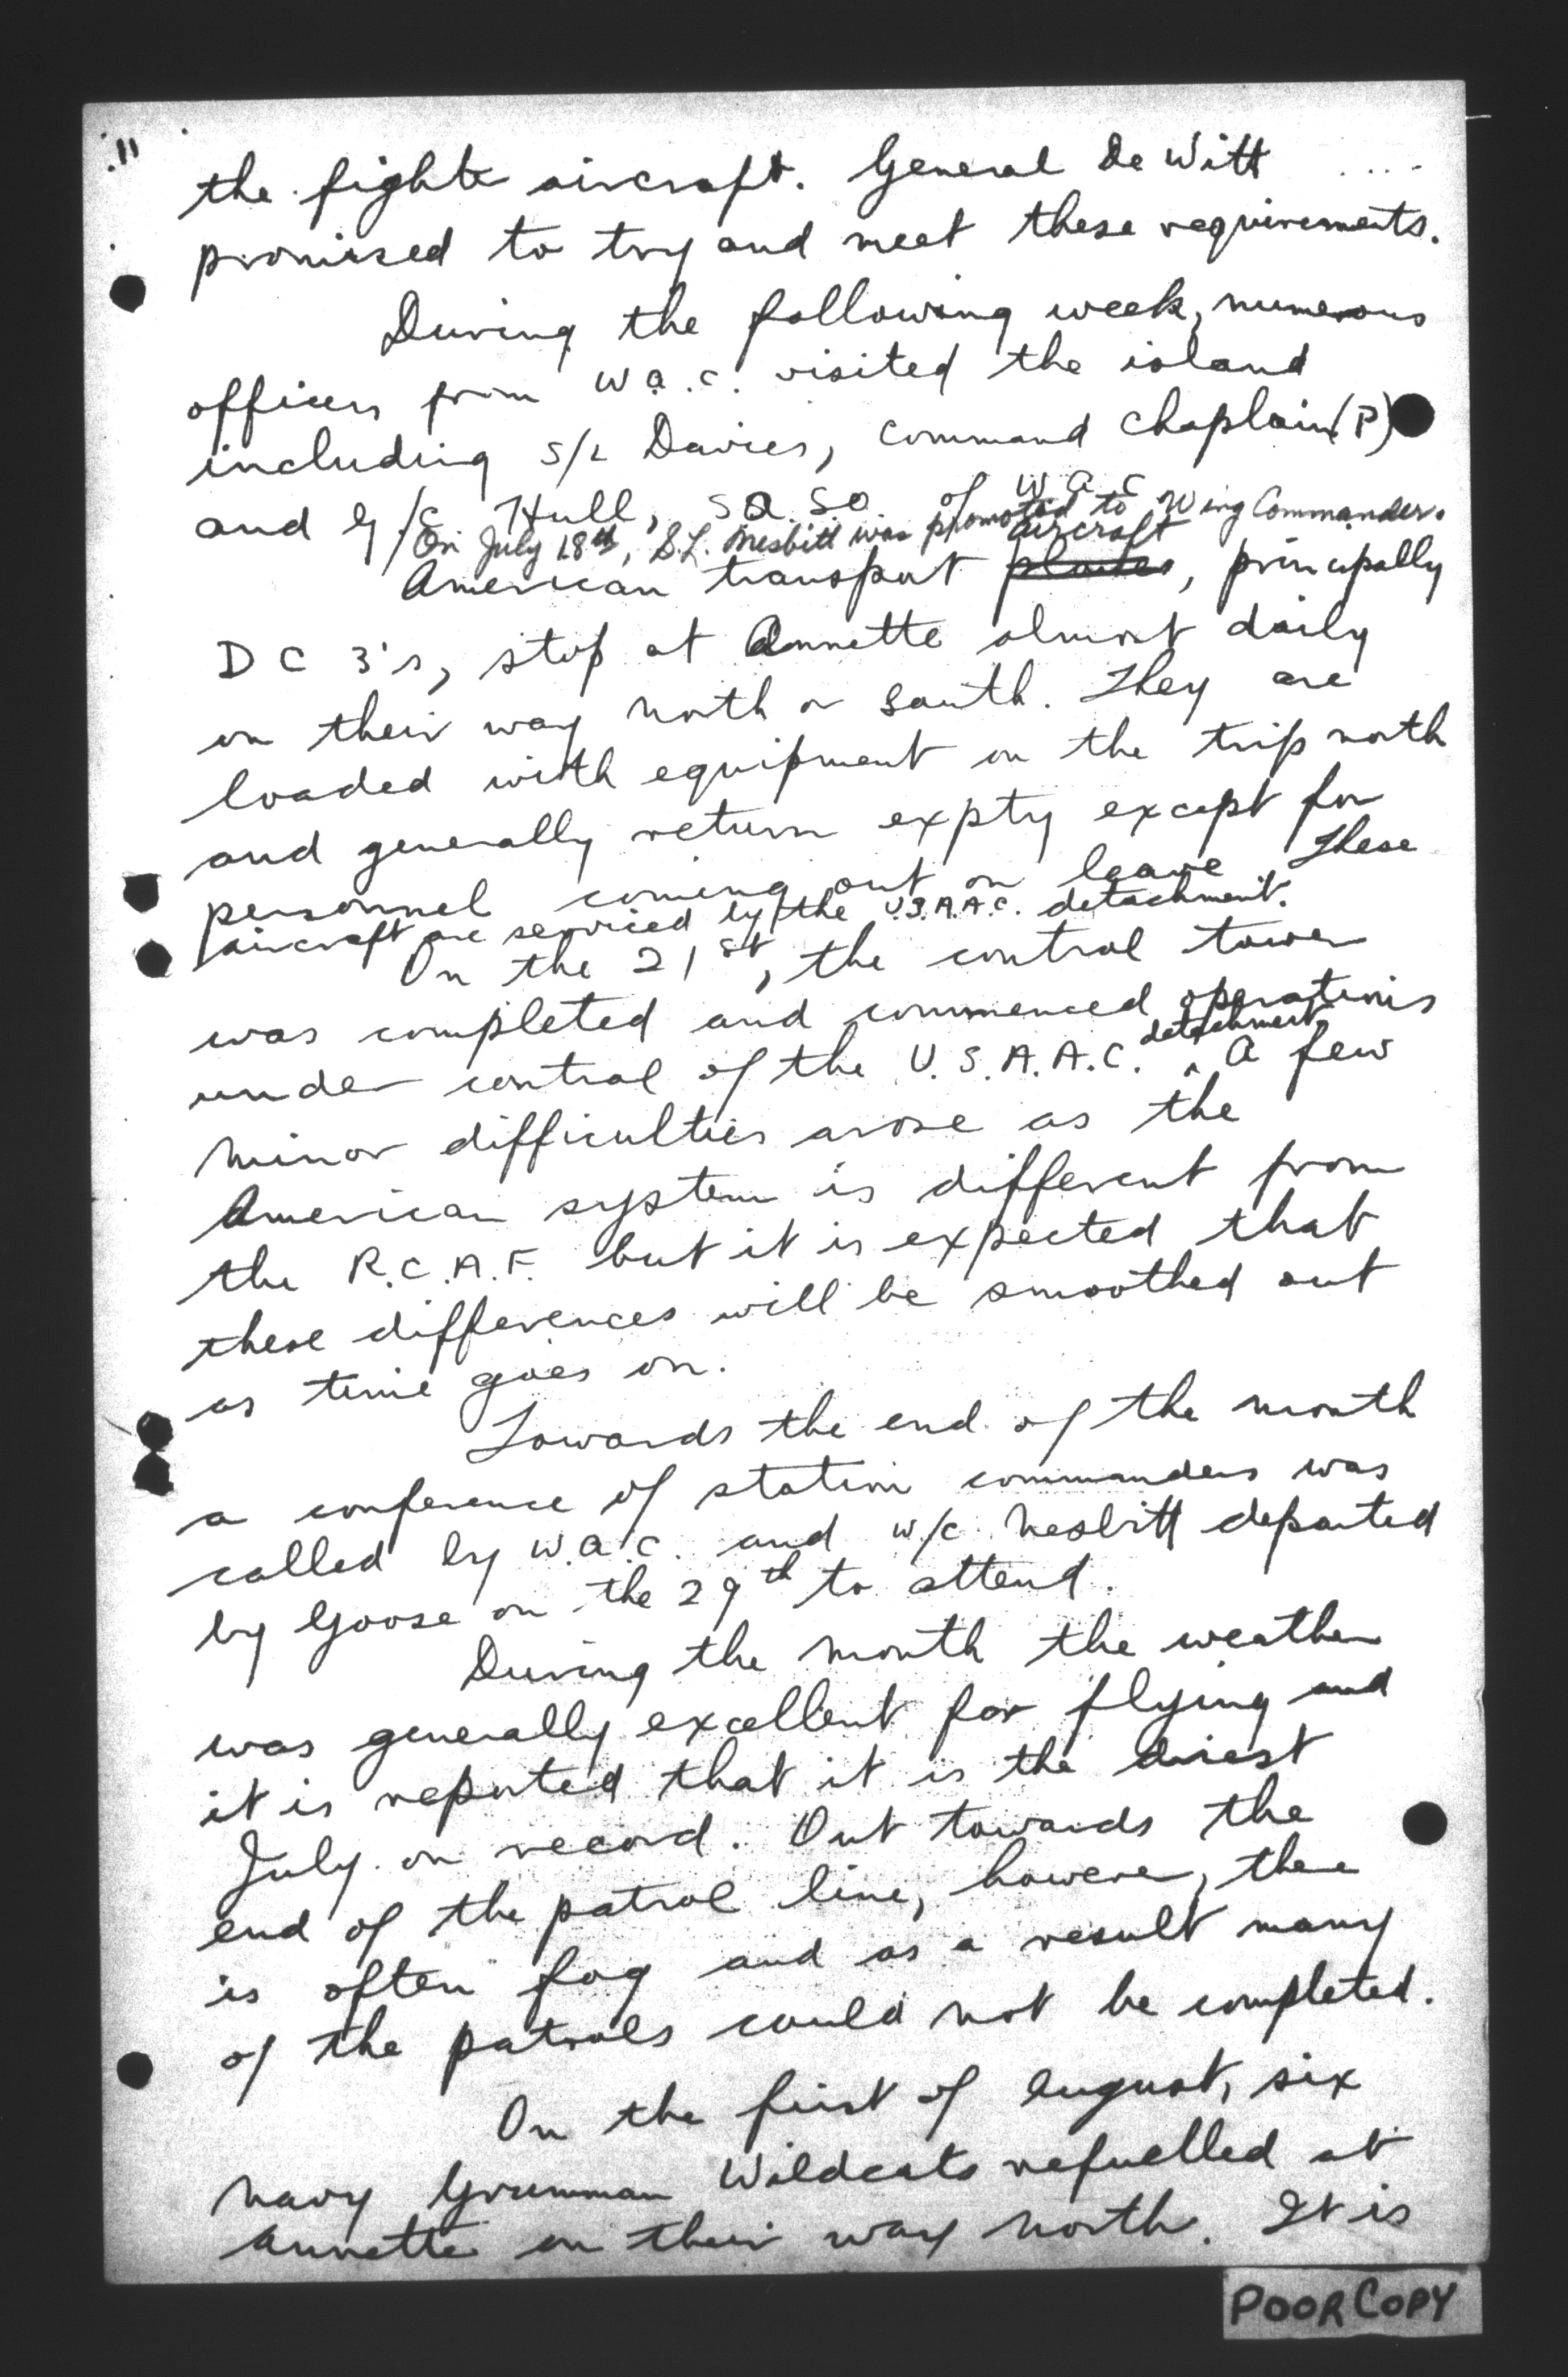 11
the fighte aircraft. General De Witt ....
promised to try and meet these requirements.
During the following week, numerous
officers from W.A.C. visited the island
including S/L Davies, Command Chaplain (P)
and G/C Hull, S.A.S.O. of W A C
On July 18th, S.L. Nesbitt was promoted to Wing Commander.
aircraft
American transport planes, principally
D C 3's, stop at Annette almost daily
on their way north or south. They are
loaded with equipment on the trip north
and generally return expty except for
personnel coming out on leave These
aircraft are serviced by the U.S.A.A.C. detachment.
On the 21st, the control tower
was completed and commenced operations
detachment
under control of the U.S.A.A.C. . A few
minor difficulties arose as the
American system is different from
the R.C.A.F. but it is expected that
these differences will be smoothed out
as time goes on.
Towards the end of the month
a conference of station commanders was
called by W.A.C. and W/C Nesbitt departed
by Goose on the 29th to attend.
During the month the weather
was generally excellent for flying and
it is reported that it is the driest
July on record. Out towards the
end of the patrol line, however, there
is often fog and as a result many
of the patrols could not be completed.
On the first of August, six
navy Grumman Wildcats refuelled at
Annette on their way north. It is
POOR COPY